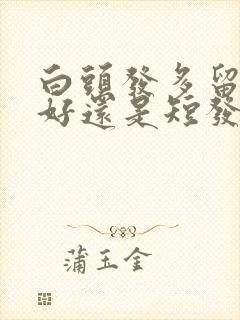 白頭發多留
好還是短發
蒲玉金